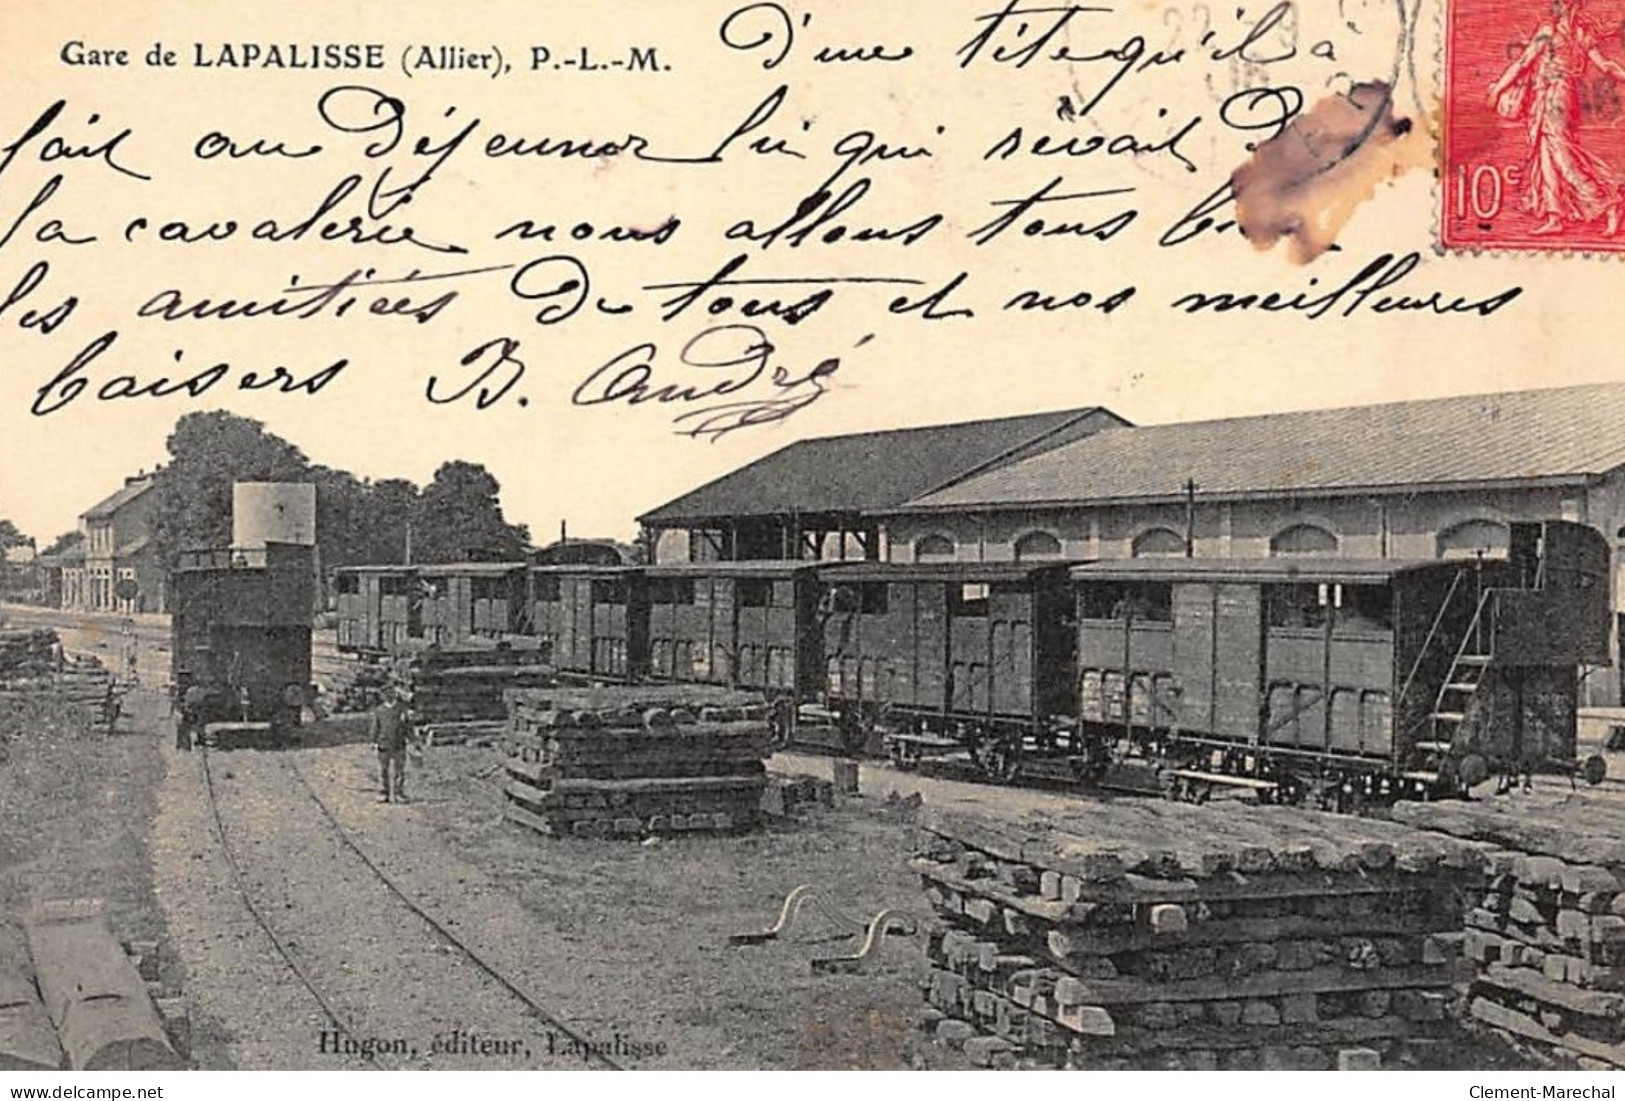 Gare de LAPALISSE (Allier), P.-L.-M.
D'une tête qu'il a
fait au Déjeuner lui qui rêvait De
la cavalerie nous allons tous
les amitiées De tous et nos meilleures
baisers B. André
10c
Hugon, éditeur, Lapalisse
www.delcampe.net
Clement-Marechal